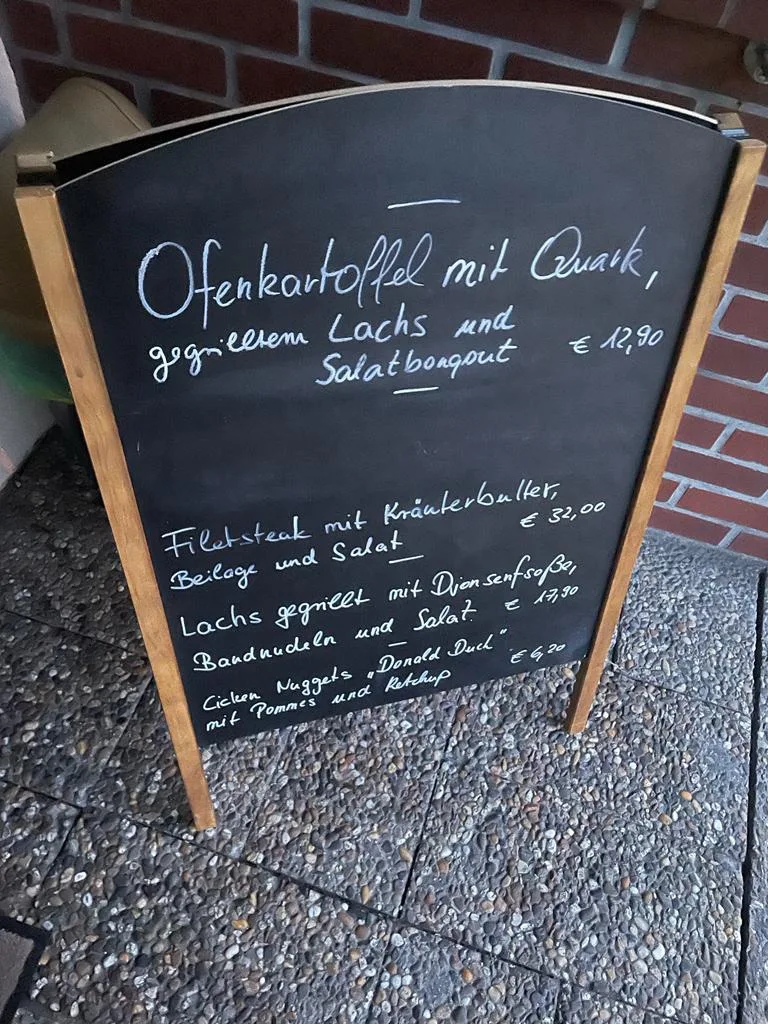 Ofenkartoffel mit Quark,
gegrilltem Lachs und
Salatbouqout € 12,90
Filetsteak mit Kräuterbutter,
€ 32,00
Beilage und Salat
Lachs gegrillt mit Djonsenfsoße,
Bandnudeln und Salat € 17,90
Cicken Nuggets „Donald Duck" € 6,20
mit Pommes und Ketchup